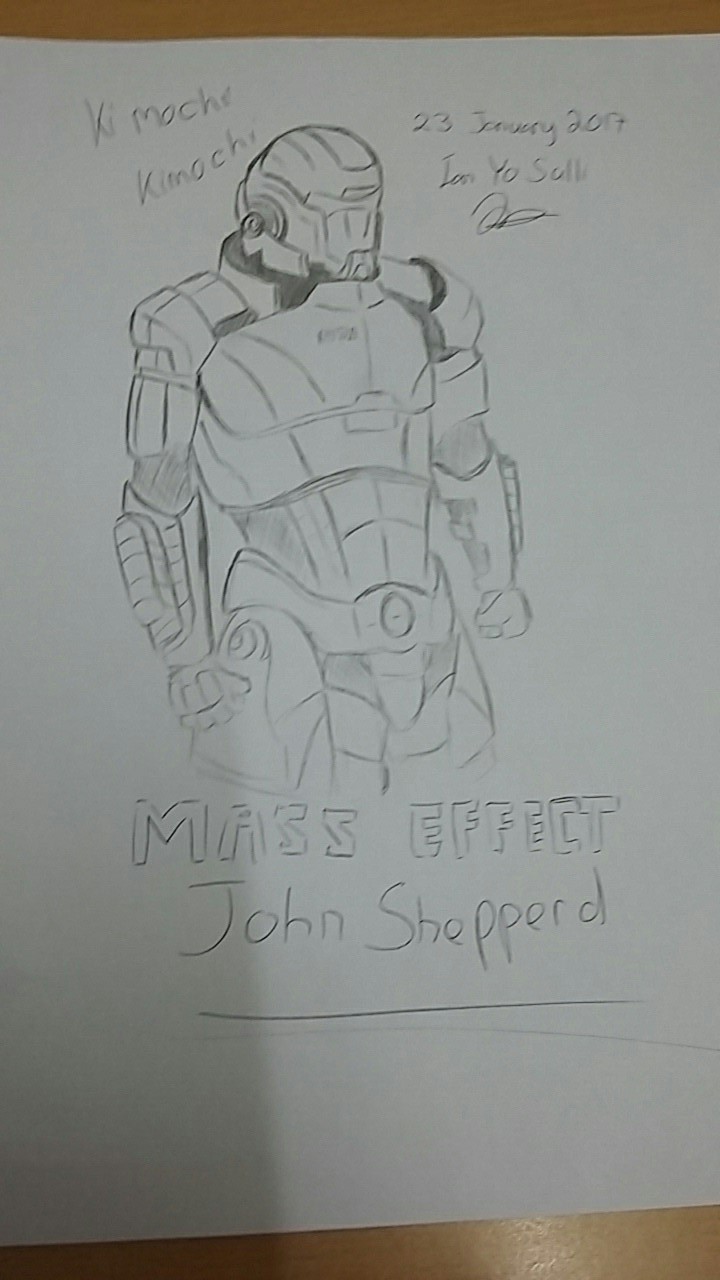 Ki mochi
Kimochi
23 January 2017
Ian Yo Sulli
MASS EFFECT
John Shepperd